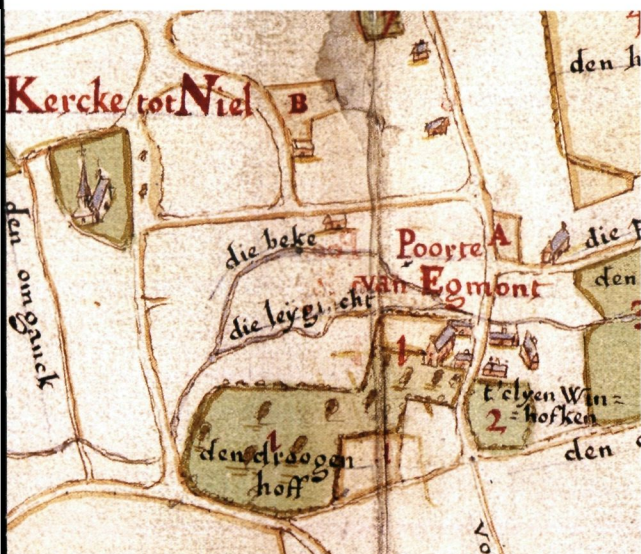 den h
Kercke tot Niel
B
den omganck
die beke
Poorte A
van Egmont
die
den
die leygracht
1
t'clyen Win=
=hofken
2
den droogen
hoff
1
den
vo